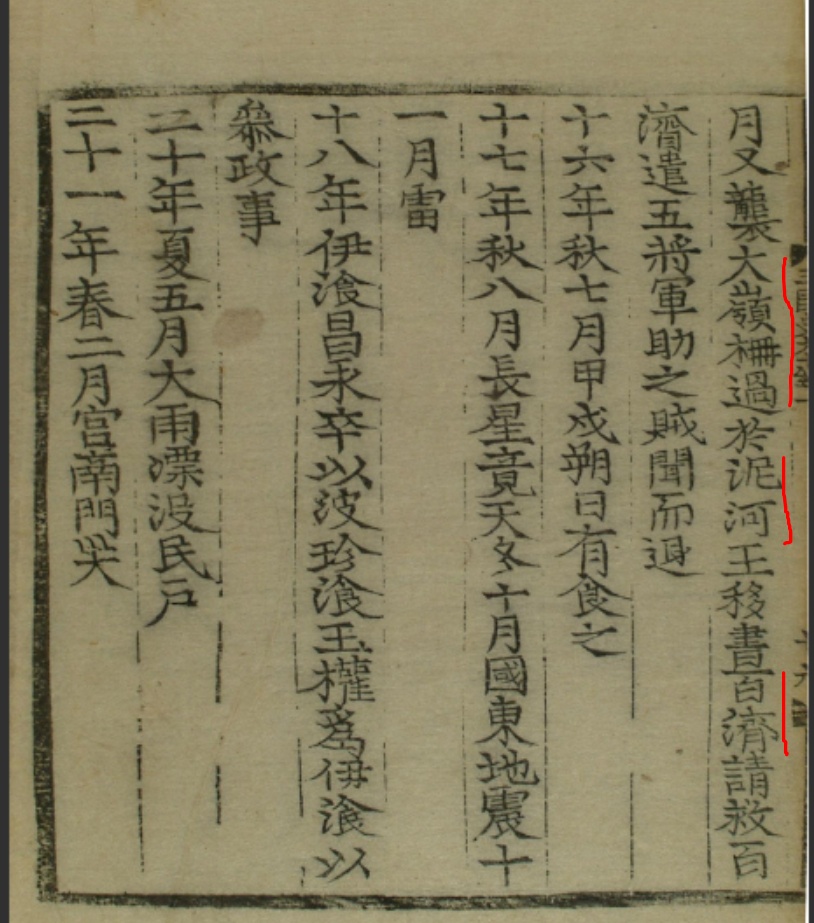 月又襲大嶺柵過於泥河王移書百濟請救百
濟遣五將軍助之賊聞而退
十六年秋七月甲戌朔日有食之
十七年秋八月長星竟天冬十月國東地震十
一月雷
十八年伊湌昌永卒以波珍湌玉權爲伊湌以
叅政事
二十年夏五月大雨漂沒民戶
二十一年春二月宮南門災